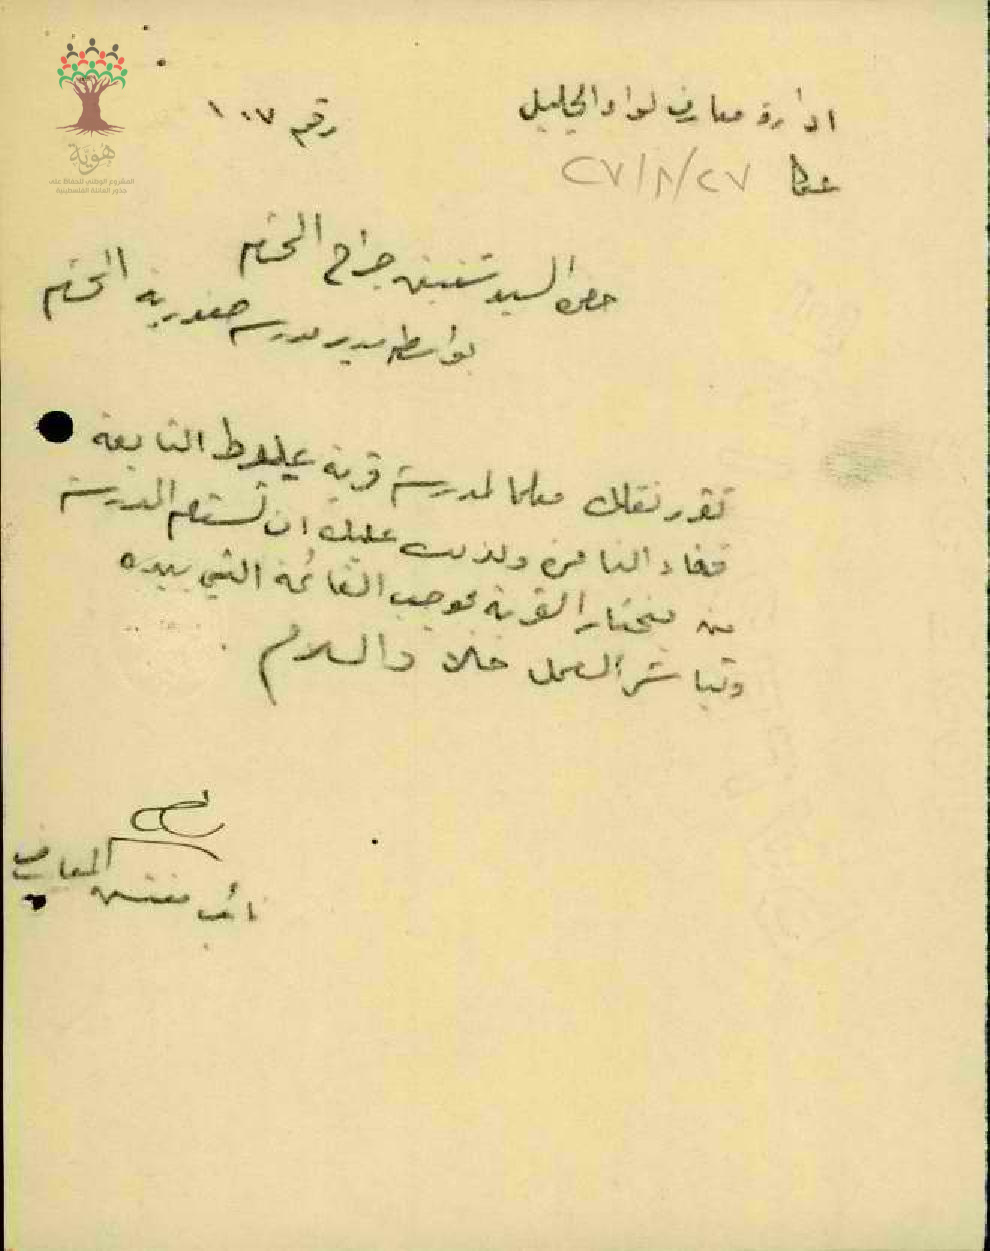 ادارة معارف لواء الجليل
رقم ١٠٧
عكا ٢٧/٨/٢٧
حضرة السيد شفيق جراح المحترم
بواسطة مدير مدرسة صفورية المحترم
تقرر نقلك معلما لمدرسة قرية عيلوط التابعة
قضاء الناصرة ولذلك عليك ان تستلم المدرسة
من مختار القرية بموجب القائمة التي بيده
وتباشر العمل حالا والسلام
نائب مفتش المعارف
هوية
المشروع الوطني للحفاظ على
جذور العائلة الفلسطينية